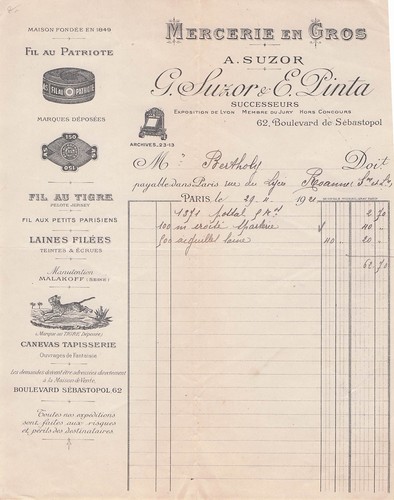 MAISON FONDÉE EN 1849
FIL AU PATRIOTE
FIL AU PATRIOTE
MARQUES DÉPOSÉES
150
150
FIL AU TIGRE
PELOTE JERSEY
FIL AUX PETITS PARISIENS
LAINES FILÉES
TEINTES & ÉCRUES
Manutention
MALAKOFF (SEINE)
Marque au TIGRE Déposée
CANEVAS TAPISSERIE
Ouvrages de Fantaisie
Les demandes doivent être adressées directement
à la Maison de Vente,
BOULEVARD SÉBASTOPOL, 62
Toutes nos expéditions
sont faites aux risques
et périls des destinataires.
MERCERIE EN GROS
A. SUZOR
G. Suzor & E. Pinta
SUCCESSEURS
EXPOSITION DE LYON MEMBRE DU JURY HORS CONCOURS
62, Boulevard de Sébastopol
ARCHIVES_23-13
M Bertholy Doit
payable dans Paris rue de Lyon Roanne
PARIS, le 29 11 1921
1371 postal 2 70
100 m croisé 40 "
500 aiguilles laine 40 " 20 "
62 70